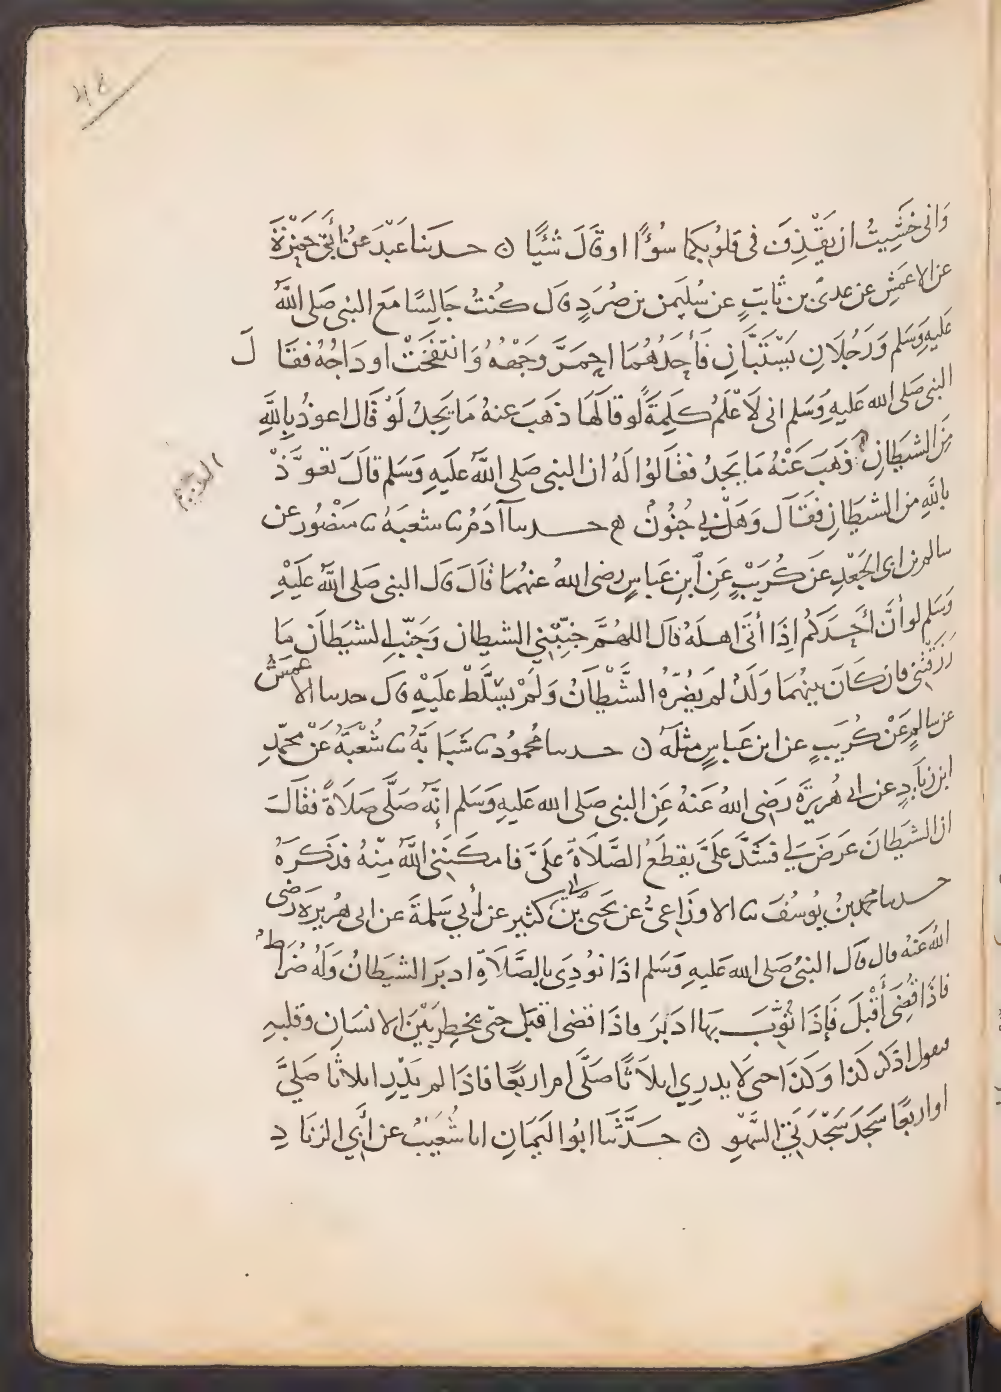 وَانى خَشِيتُ ان يَقْذِفَ فى قلُوبكما سُوْءًا او قَالَ شَيْئًا ن حدثنا عَبْدَ عنُ أبَى حَمْزةَ
عن الاعمَشِ عن عدىّ بن ثابتٍ عن سُليمن بن صُرَدٍ قال كُنتُ جَالِسًا مَع النبى صَلى اللهُ
عليهِ وَسَلم وَرَجُلَان يَسْتَبَّانِ فَأحَدُهُمَا احمَرَّ وجْههُ وَانتفَخَتْ اوداجُهُ فقَالَ
النبى صَلى الله عَليهِ وَسَلم انى لَاعْلَمُ كلِمَةً لو قالَهَا ذهَبَ عنهُ مَا يَجِدُ لَوْ قَال اعوذُ بِاللهِ
مِنَ الشيطَانِ ذهَبَ عَنْهُ مَا يَجدُ فقَالوُا لَهُ ان النبى صَلى اللهُ علَيهِ وَسَلم قالَ تعَوَّذْ
الرجيم
باللهِ من الشيطَانِ فقَال وَهَلْ بى جُنُونٌ ح حدسا آدَمُ سا شعبَهُ سا مَنْصُور عن
سالم بن ابى الجَعْدِ عَن كُرَيْبٍ عَنِ ابنِ عَباسٍ رضى اللهُ عنهُمَا قالَ قال النبى صَلى اللهُ علَيْهِ
وَسَلم لو أنَّ أحَدَكُم اذَا أتَى اهلَهُ قال اللهُمَّ جنِّبْنِي الشيطان وَجَنِّب الشيَطَان مَا
رَزَقْتَنِى فان كَانَ بينهُمَا وَلَدٌ لم يَضُرّهُ الشَّيْطَانُ وَلَمْ يسَلَّطْ عليْهِ قال حدسا الاعمَشُ
عن سالمٍ عَنْ كُرَيبٍ عن ابن عَباسٍ مثلَه ن حدسا محمُودٌ سا شَبَابَةُ سا شُعْبَةُ عَنْ محمّدِ
ابن زيَادٍ عن ابى هُريرَةَ رَضِى اللهُ عَنهُ عَنِ النبى صَلى الله عَليهِ وَسَلم إنَّهُ صَلَّى صَلَاةً فقالَ
ان الشيطَانَ عَرَضَ لى فشَدَّ علَىَّ يقطَعُ الصَّلَاةَ علَىَّ فامكَنَنِى اللهُ مِنْهُ فذكرَهُ
حدسا محمد بنُ يُوسُفَ سا الاوزَاعىُّ عن يَحيَى بْنِ ابى كثير عن أبِي سَلمَةَ عن ابى هُريرةَ رَضى
اللهُ عَنْهُ قال قال النبىُ صَلى الله عَليهِ وَسَلم اذَا نوُدِىَ بالصَّلَاةِ ادبَرَ الشيطَانُ وَلَهُ ضُرَاطٌ
فاذَا قُضِىَ أقْبَلَ فَإذَا ثُوِّبَ بهَا ادبَرَ فاذَا قضى اقبَلَ حتى يخطِر بَيْنَ الانسَانِ وقلبِهِ
فيقول اذكر كذا وَكَذَا حتى لَا يدرِي اثلَاثًا صَلَّى ام اربَعًا فاذَا لم يَدْرِ اثلاثا صَليَّ
او اربعًا سَجَدَ سَجْدَتَيِ السَّهْوِ ن حَدَّثَنَا ابوُ اليمَانِ انا شُعَيْبٌ عن أبِي الزنَادِ